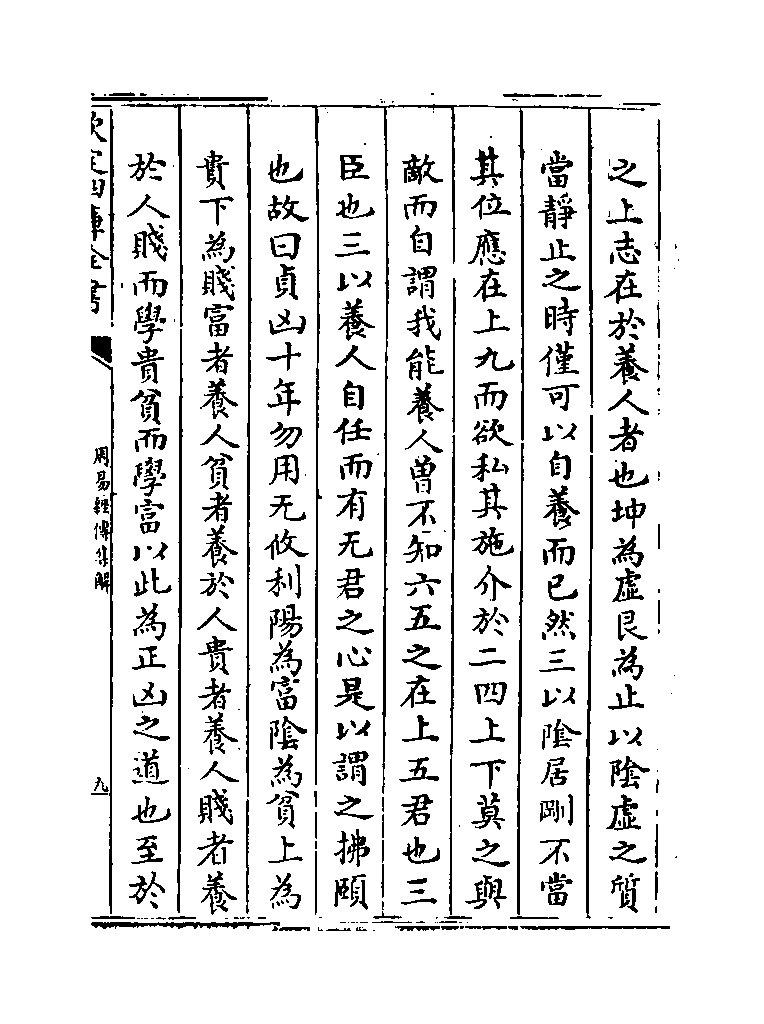 之上志在於養人者也坤為虛艮為止以陰虛之質
當靜止之時僅可以自養而已然三以陰居剛不當
其位應在上九而欲私其施介於二四上下莫之與
敵而自謂我能養人曽不知六五之在上五君也三
臣也三以養人自任而有无君之心是以謂之拂頤
也故曰貞凶十年勿用无攸利陽為富陰為貧上為
貴下為賤富者養人貧者養於人貴者養人賤者養
於人賤而學貴貧而學富以此為正凶之道也至於
欽定四庫全書
周易經傳集解
九